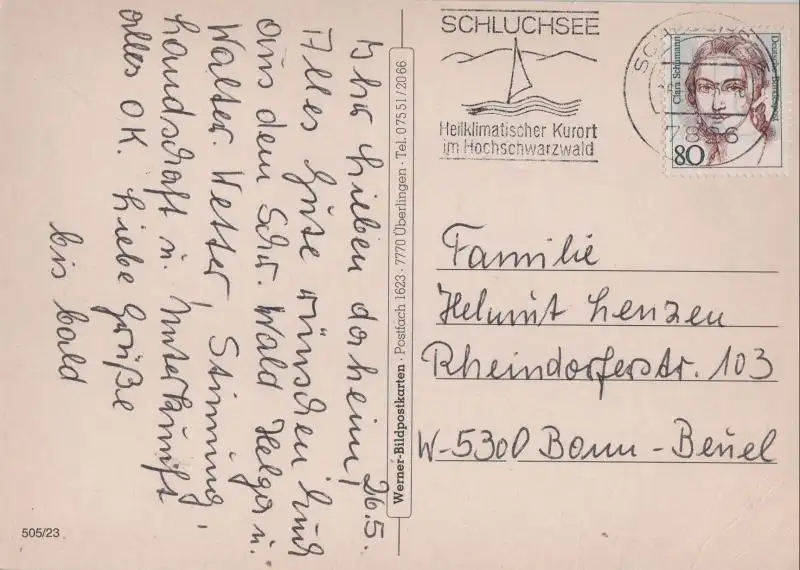 26.5.
Ihr Lieben daheim,
Alles Gute wünschen Euch
aus dem Schw. Wald Helga u.
Walter. Wetter, Stimmung,
Landschaft u. Unterkunft
alles OK. Liebe Grüße
bis bald
505/23
Werner-Bildpostkarten · Postfach 1623 · 7770 Überlingen · Tel. 07551/2066
SCHLUCHSEE
Heilklimatischer Kurort
im Hochschwarzwald
Clara Schumann
Deutsche Bundespost
80
Familie
Helmut Lenzen
Rheindorferstr. 103
W-5300 Bonn-Beuel